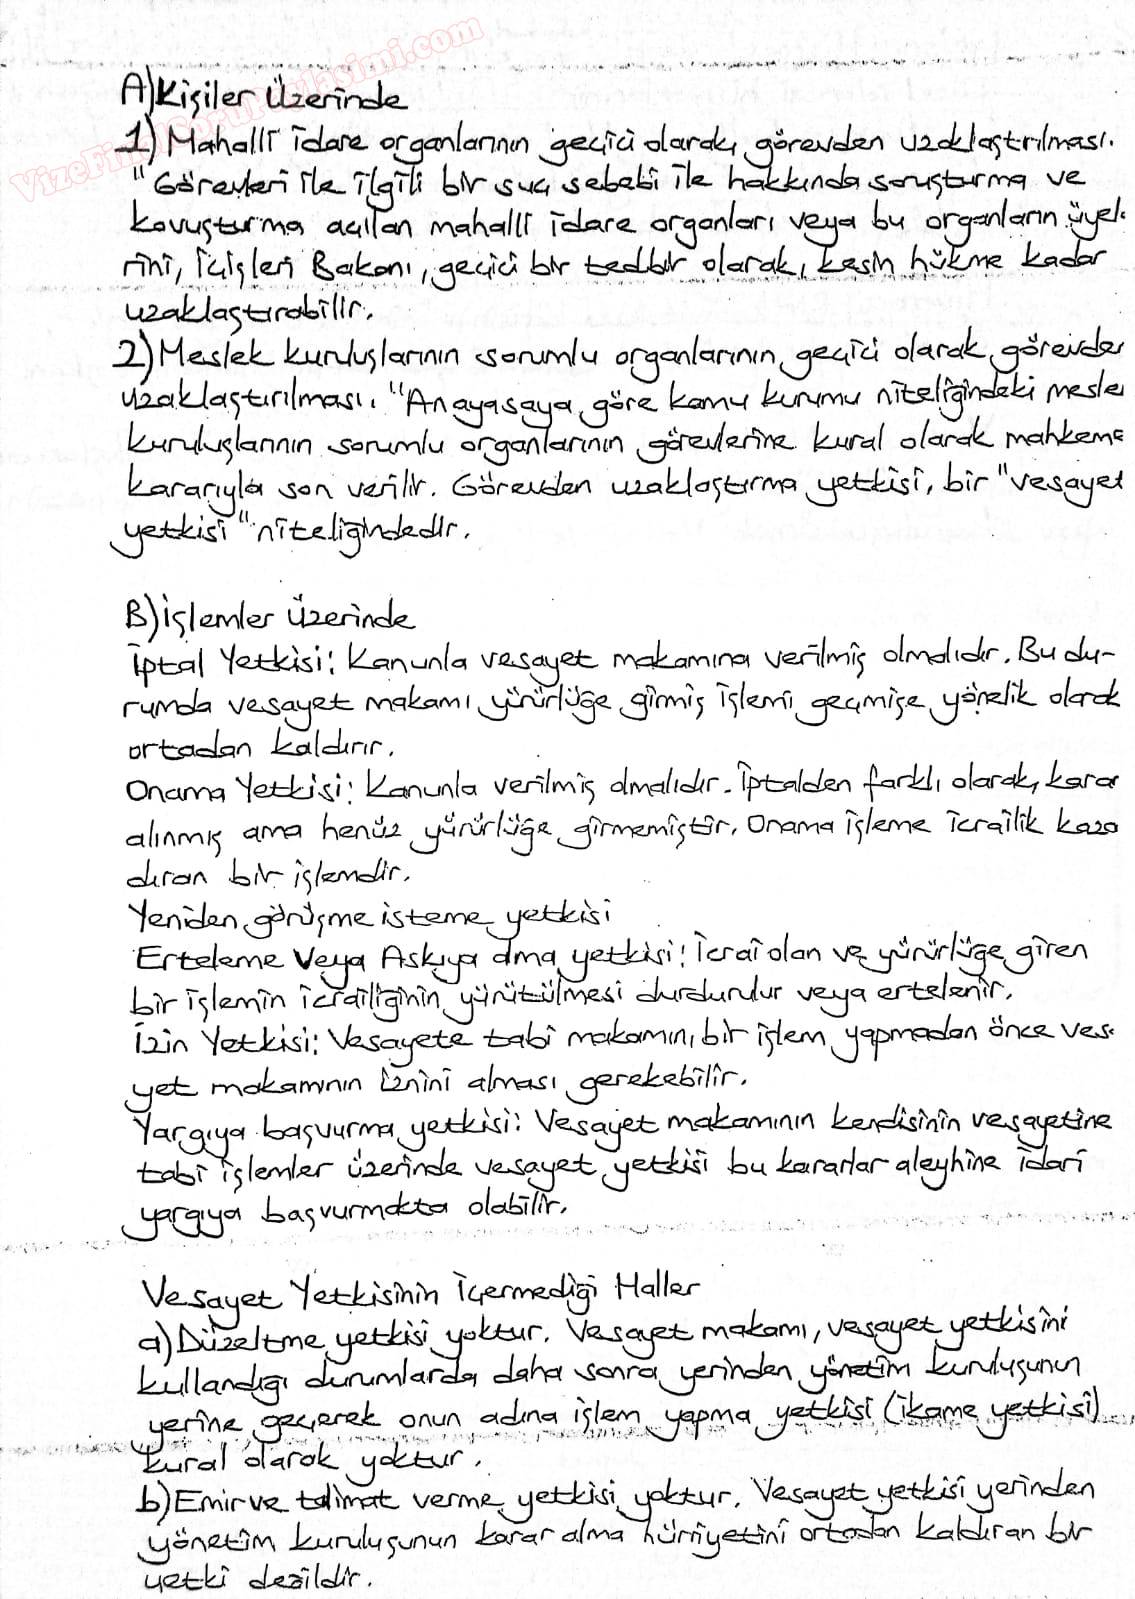 VizeFinalSoruPaylasimi.com
A) Kişiler Üzerinde
1) Mahalli idare organlarının geçici olarak, görevden uzaklaştırılması.
"Görevleri ile ilgili bir suç sebebi ile hakkında soruşturma ve
kovuşturma açılan mahalli idare organları veya bu organların üyele
rini, İçişleri Bakanı, geçici bir tedbir olarak, kesin hükme kadar
uzaklaştırabilir.
2) Meslek kuruluşlarının sorumlu organlarının geçici olarak görevden
uzaklaştırılması. "Anayasaya göre kamu kurumu niteliğindeki meslek
kuruluşlarının sorumlu organlarının görevlerine kural olarak mahkeme
kararıyla son verilir. Görevden uzaklaştırma yetkisi, bir "vesayet
yetkisi" niteliğindedir.
B) İşlemler Üzerinde
İptal Yetkisi: Kanunla vesayet makamına verilmiş olmalıdır. Bu du-
rumda vesayet makamı yürürlüğe girmiş işlemi geçmişe yönelik olarak
ortadan kaldırır.
Onama Yetkisi: Kanunla verilmiş olmalıdır. İptalden farklı olarak, karar
alınmış ama henüz yürürlüğe girmemiştir. Onama işleme icrailik kaza
dıran bir işlemdir.
Yeniden görüşme isteme yetkisi
Erteleme Veya Askıya alma yetkisi: İcrai olan ve yürürlüğe giren
bir işlemin icrailiğinin yürütülmesi durdurulur veya ertelenir.
İzin Yetkisi: Vesayete tabi makamın, bir işlem yapmadan önce vesa
yet makamının iznini alması gerekebilir.
Yargıya başvurma yetkisi: Vesayet makamının kendisinin vesayetine
tabi işlemler üzerinde vesayet yetkisi bu kararlar aleyhine idari
yargıya başvurmakta olabilir.
Vesayet Yetkisinin İçermediği Haller
a) Düzeltme yetkisi yoktur. Vesayet makamı, vesayet yetkisini
kullandığı durumlarda daha sonra yerinden yönetim kuruluşunun
yerine geçerek onun adına işlem yapma yetkisi (ikame yetkisi)
kural olarak yoktur.
b) Emir ve talimat verme yetkisi yoktur. Vesayet yetkisi yerinden
yönetim kuruluşunun karar alma hürriyetini ortadan kaldıran bir
yetki değildir.